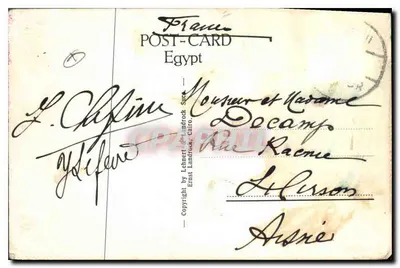 France
POST-CARD
Egypt
Monsieur et Madame
Decamp
Rue Racine
Aisne
Y Lefevre
— Copyright by Lehnert & Landrock Succ.
Ernst Landrock, Cairo.